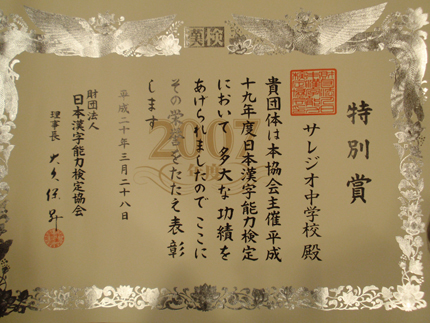 漢検
特別賞
サレジオ中学校 殿
貴団体は本協会主催平成
十九年度日本漢字能力検定
において多大な功績を
あげられましたのでここに
その栄誉をたたえ表彰
します
2007
平成二十年三月二十八日
財団法人
日本漢字能力検定協会
理事長 大久保昇